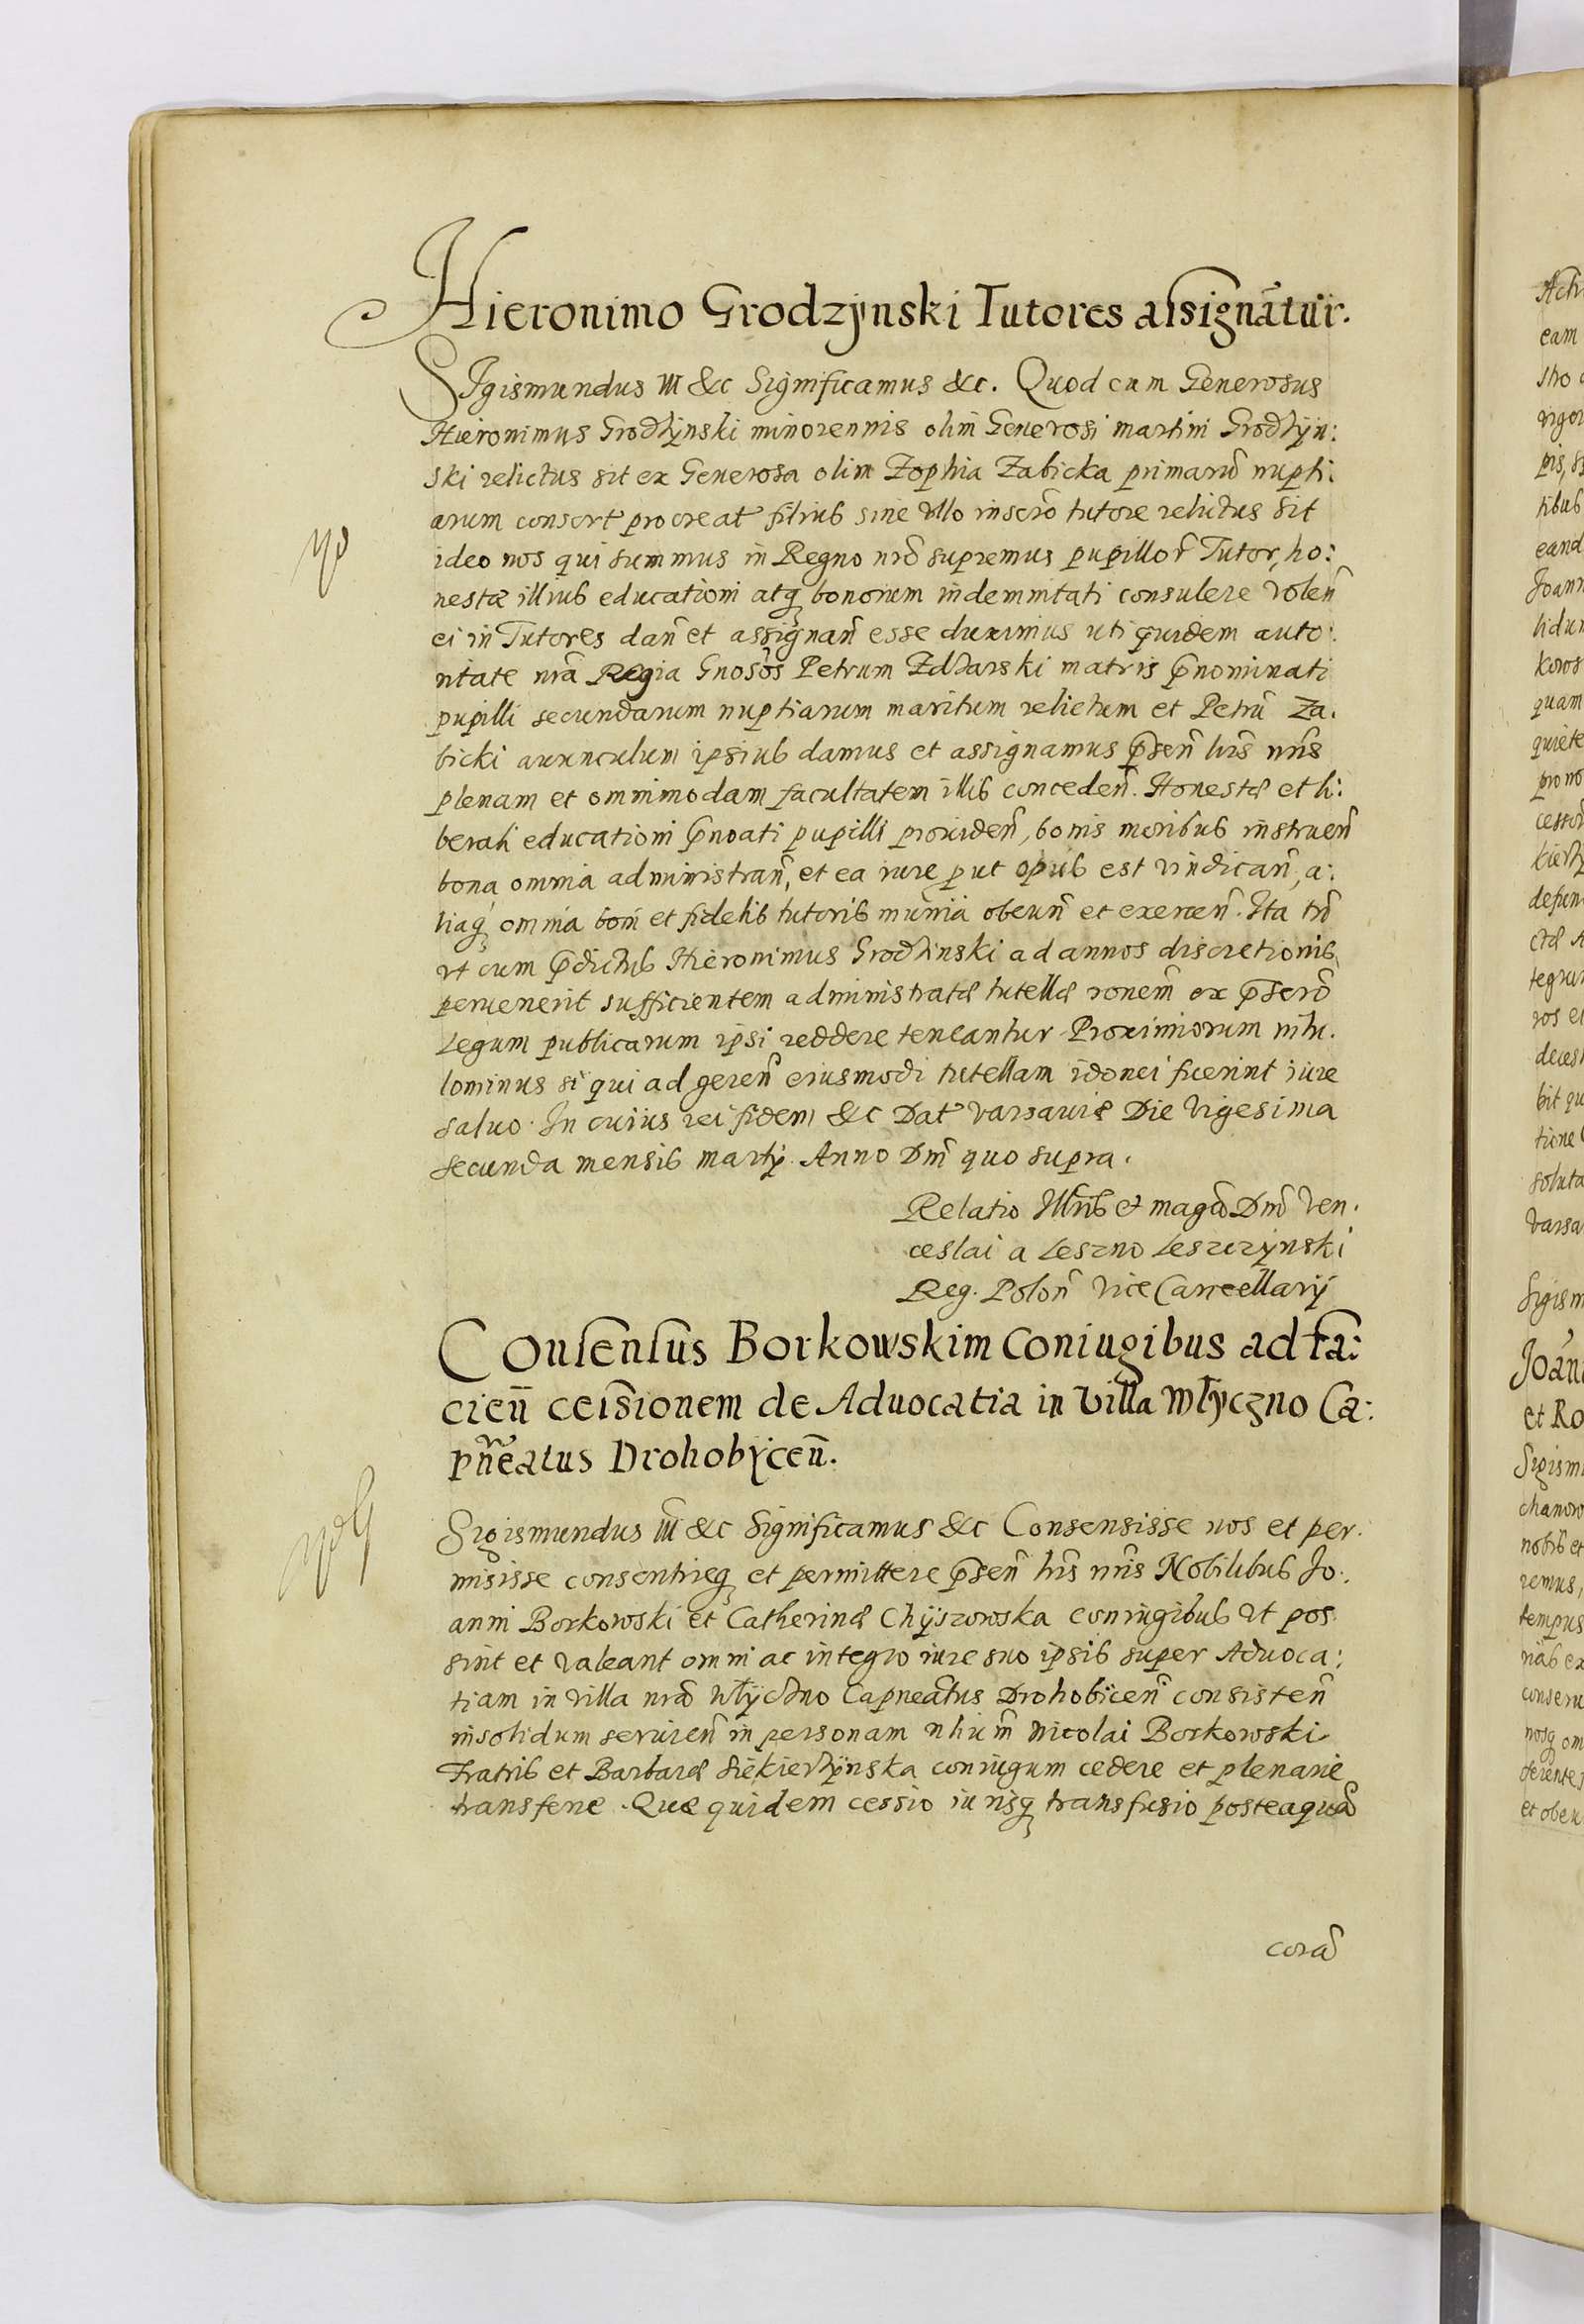 Hieronimo Grodzÿnski Tutores assignãtur.
SIgismundus III &c Significamus &c. Quod cum Generosus
Hieronimus Grodzÿnski minorennis olim Generosi martini Grodzÿn:
ski relictus sit ex Generosa olim Zophia Zabicka primarũ nupti:
arum consort procreat filius sine vllo inscrõ tutore relictus sit
ideo nos qui summus in Regno nrõ supremus pupillor̃ Tutor, ho:
nestæ illius educationi atq bonorum indemnitati consulere volen̄
ei in Tutores dan̄ et assignan̄ esse duximus uti quidem auto:
ritate nrã Regia Gnosõs Petrum Zdzarski matris p̃nominati
pupilli secundarum nuptiarum maritum relictum et Petrũ Za.
bicki auunculum ipsius damus et assignamus p̃sen̄ lr̃is nr̃is
plenam et omnimodam facultatem illis conceden̄. Honestæ et li:
berali educationi p̃noati pupilli prouiden̄, bonis moribus instruen̄
bona omnia administran̄, et ea iure put opus est vindican̄, a:
liaq omnia boni et fidelis tutoris munia obeun̄ et exercen̄. Ita tñ
vt cum p̃dictus Hieronimus Grodzinski ad annos discretionis
peruenerit sufficientem administratæ tutellæ ronem̃ ex p̃scrõ
Legum publicarum ipsi reddere teneantur Proximiorum nihi.
lominus si qui ad geren̄ eiusmodi tutellam idonei fuerint iure
saluo. In cuius rei fidem &c Dat varsauiæ Die vigesima
secunda mensis martÿ. Anno Dnĩ quo supra.
Relatio Illrĩs et magcĩ Dnĩ Ven.
ceslai a Leszno Leszczÿnski
Reg. Polon̄ Vice Cancellarÿ
Consensus Borkowskim Coniugibus ad fa:
cien̄ cessionem de Aduocatia in villa Młÿczno Ca:
pñeatus Drohobÿcen̄.
Sigismundus III &c Significamus &c Consensisse nos et per.
misisse consentireq et permittere p̃sen̄ lr̃is nr̃is Nobilibus Jo.
anni Borkowski et Catherinæ Chÿszowska coniugibus vt pos
sint et valeant omni ac integro iure suo ipsis super Aduoca:
tiam in villa nrã Młÿczno Capneãtus Drohobÿcen̄ consisten̄
insolidum seruien̄ in personam nliũm Nicolai Borkowski
Fratris et Barbaræ Siekierzÿnska coniugum cedere et plenarie
transferre. Quæ quidem cessio iurisq transfusio posteaquã
corã